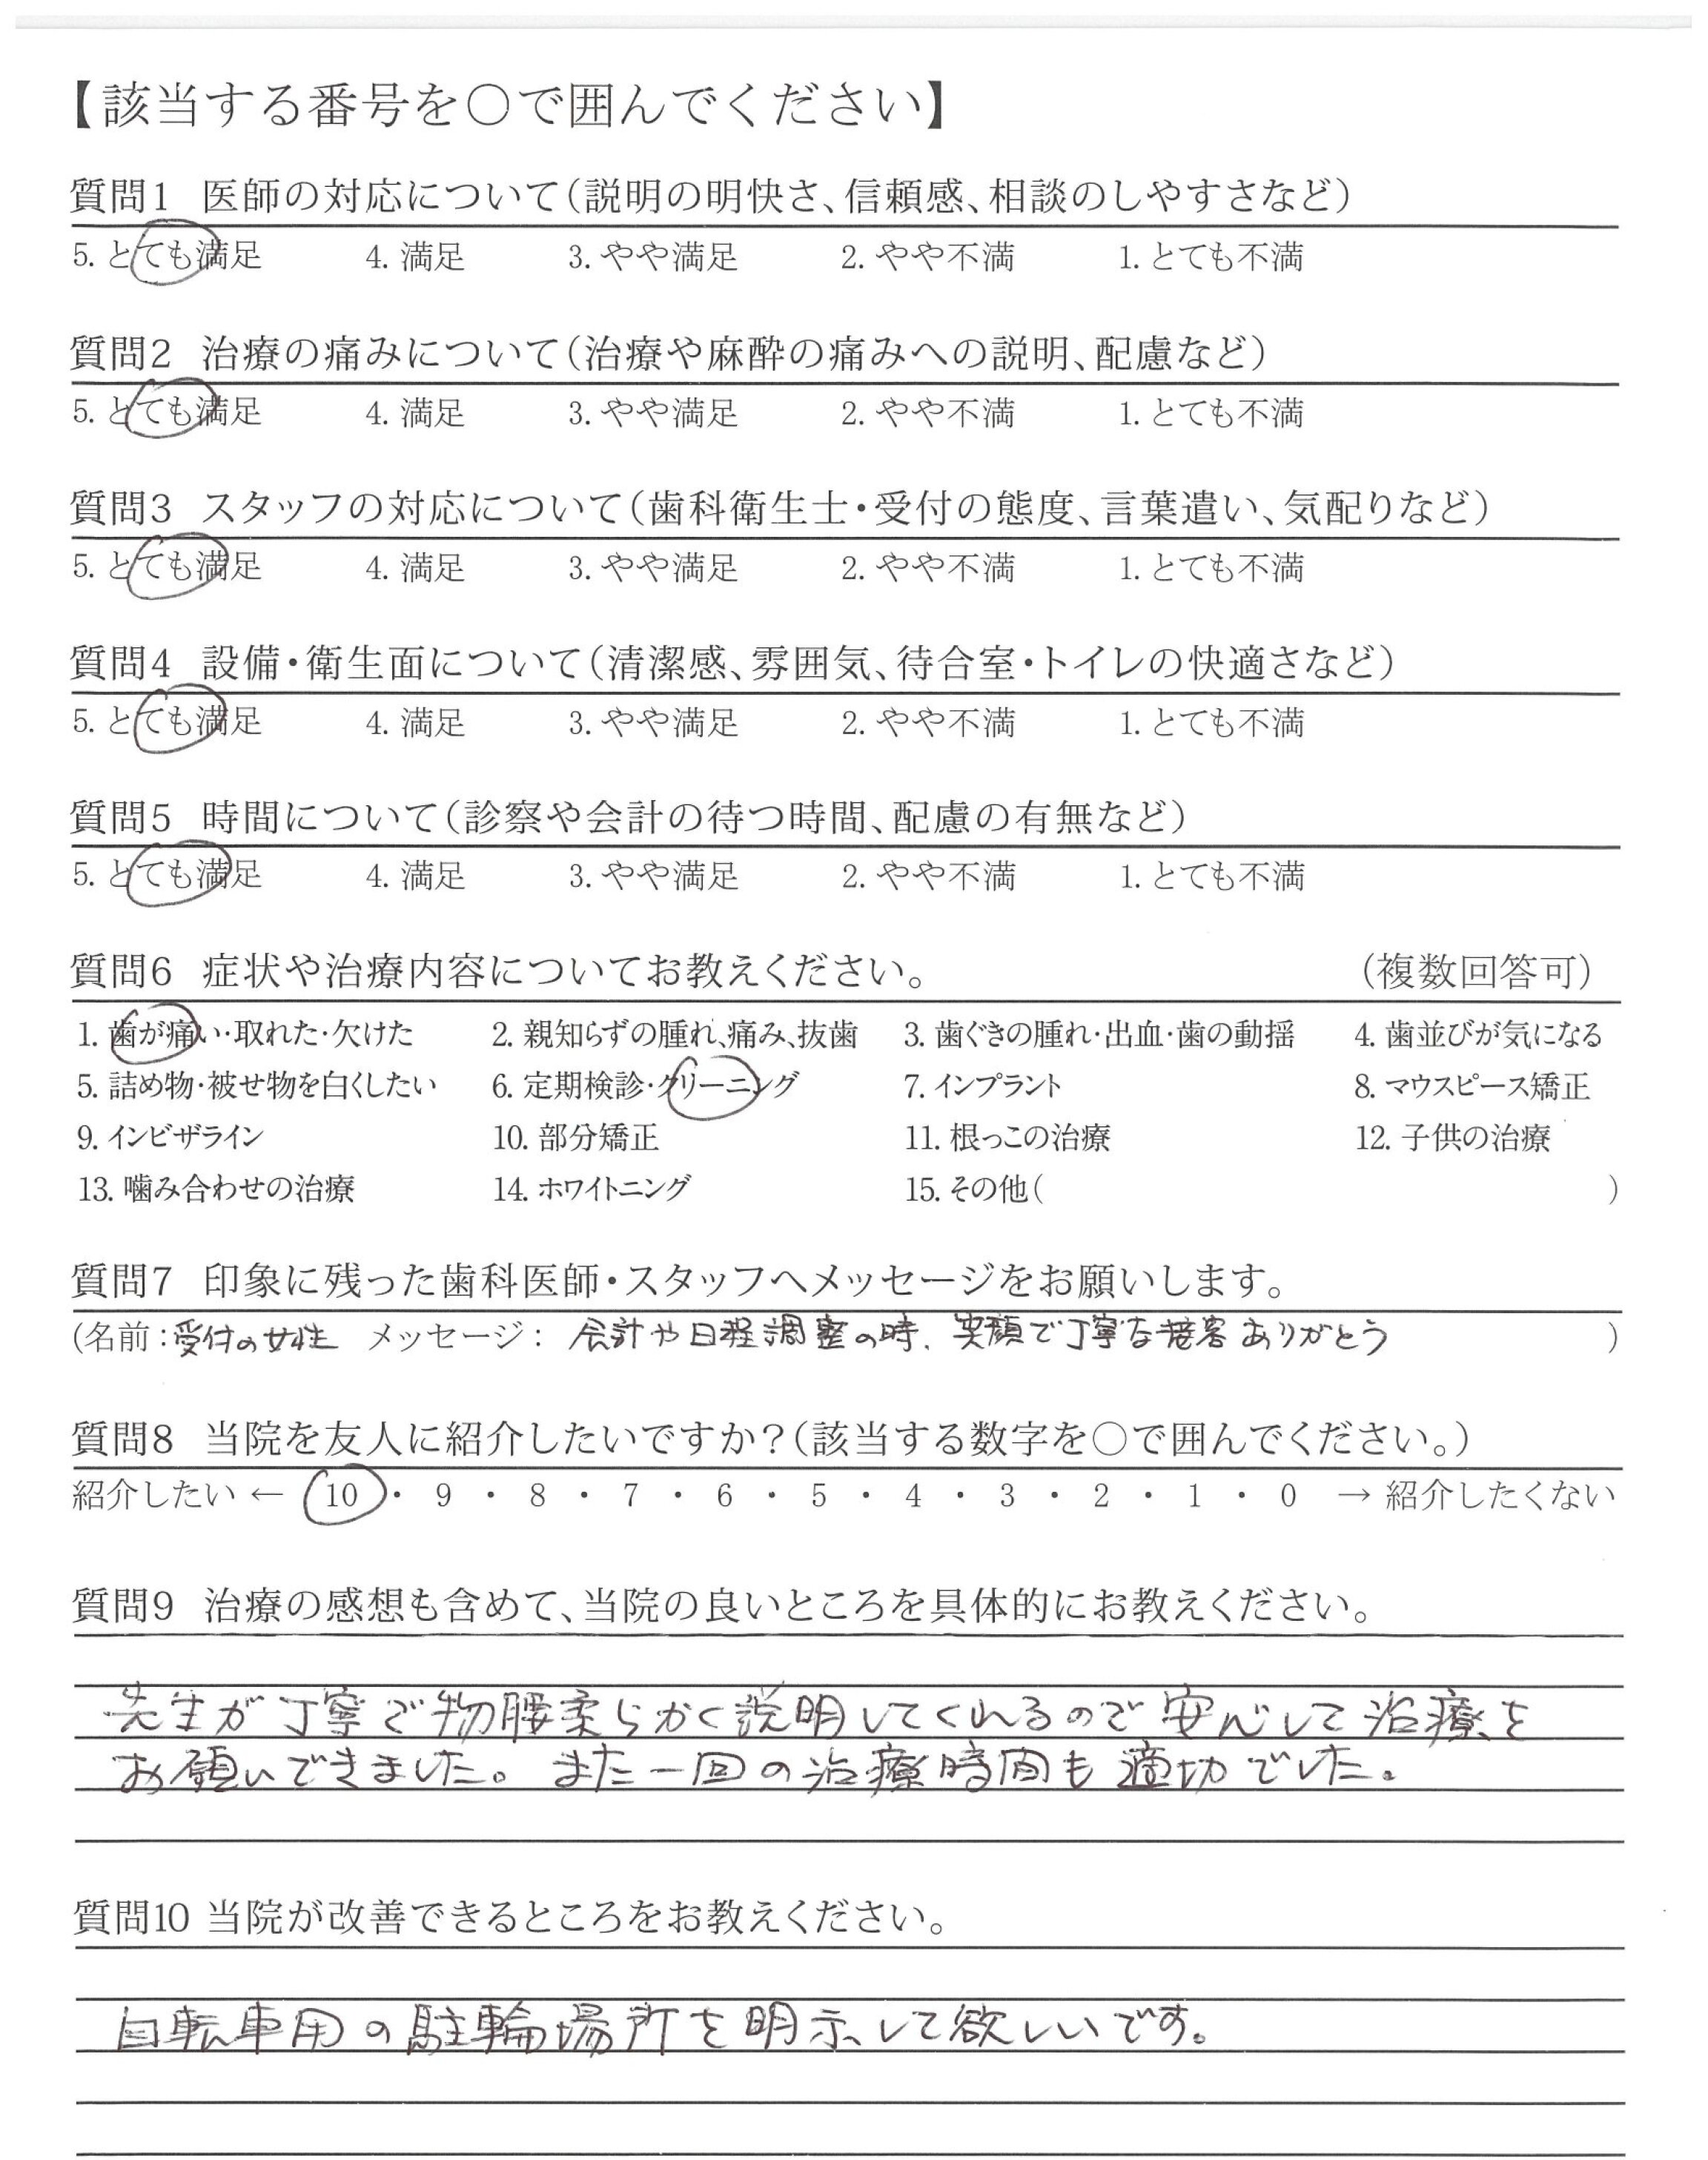 【該当する番号を○で囲んでください】
質問1 医師の対応について(説明の明快さ、信頼感、相談のしやすさなど)
5. とても満足 4. 満足 3. やや満足 2. やや不満 1. とても不満
質問2 治療の痛みについて(治療や麻酔の痛みへの説明、配慮など)
5. とても満足 4. 満足 3. やや満足 2. やや不満 1. とても不満
質問3 スタッフの対応について(歯科衛生士・受付の態度、言葉遣い、気配りなど)
5. とても満足 4. 満足 3. やや満足 2. やや不満 1. とても不満
質問4 設備・衛生面について(清潔感、雰囲気、待合室・トイレの快適さなど)
5. とても満足 4. 満足 3. やや満足 2. やや不満 1. とても不満
質問5 時間について(診察や会計の待つ時間、配慮の有無など)
5. とても満足 4. 満足 3. やや満足 2. やや不満 1. とても不満
質問6 症状や治療内容についてお教えください。 (複数回答可)
1. 歯が痛い・取れた・欠けた 2. 親知らずの腫れ、痛み、抜歯 3. 歯ぐきの腫れ・出血・歯の動揺 4. 歯並びが気になる
5. 詰め物・被せ物を白くしたい 6. 定期検診・クリーニング 7. インプラント 8. マウスピース矯正
9. インビザライン 10. 部分矯正 11. 根っこの治療 12. 子供の治療
13. 噛み合わせの治療 14. ホワイトニング 15. その他( )
質問7 印象に残った歯科医師・スタッフへメッセージをお願いします。
(名前:受付の女性 メッセージ: 会計や日程調整の時、笑顔で丁寧な接客ありがとう )
質問8 当院を友人に紹介したいですか?(該当する数字を○で囲んでください。)
紹介したい ← 10 ・ 9 ・ 8 ・ 7 ・ 6 ・ 5 ・ 4 ・ 3 ・ 2 ・ 1 ・ 0 → 紹介したくない
質問9 治療の感想も含めて、当院の良いところを具体的にお教えください。
先生が丁寧で物腰柔らかく説明してくれるので安心して治療を
お願いできました。また一回の治療時間も適切でした。
質問10 当院が改善できるところをお教えください。
自転車用の駐輪場所を明示して欲しいです。